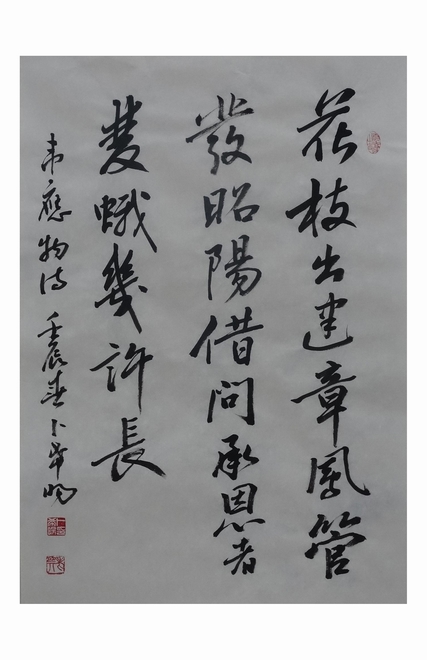 花枝出建章鳳管
發昭陽借問承恩者
雙蛾幾許長
韋應物詩 壬辰春卜華明